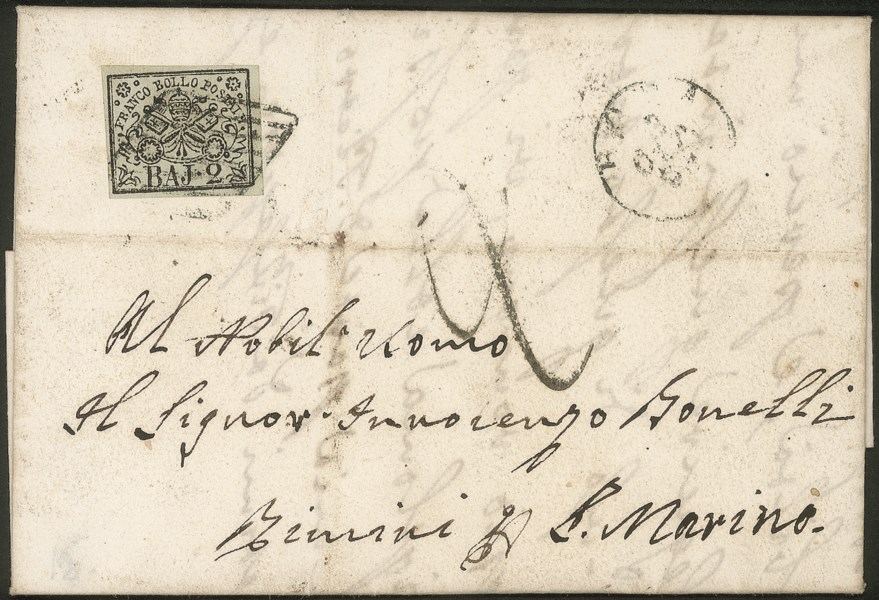 FRANCO BOLLO POSTALE
BAJ·2
ROMA
2
Al Nobil Uomo
Il Signor Innocenzo Bonelli
Rimini p S. Marino.